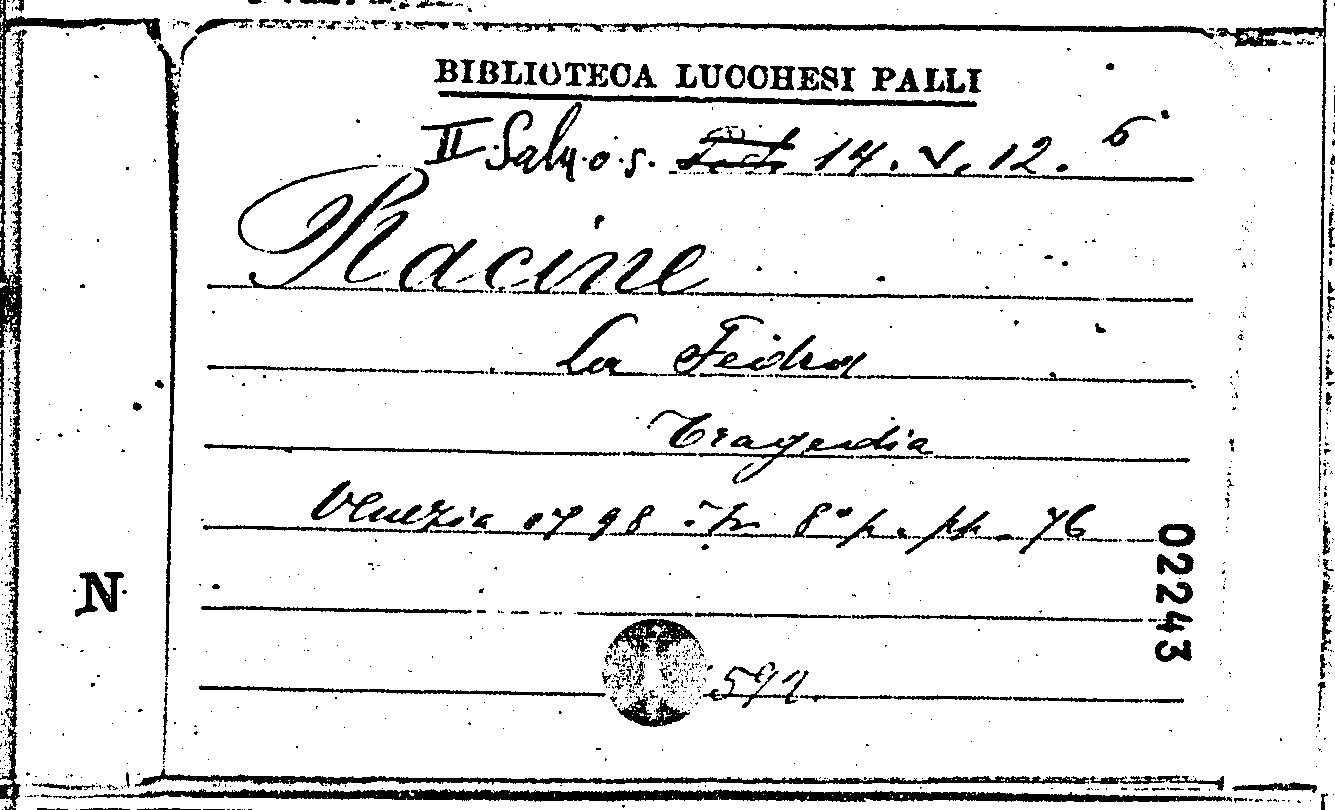 BIBLIOTECA LUCCHESI PALLI
II 14. V. 12. 6
Racine
La Fedra
Tragedia
Venezia 1798 in 8° p. pp. 76
N
02243